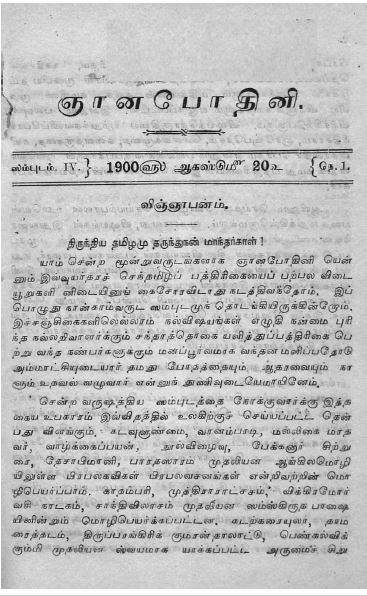 ஞானபோதினி.
ஸம்புடம். IV.} 1900௵ ஆகஸ்டு௴ 20௳ {நெ. 1.
விஞ்ஞாபனம்.
திருந்திய தமிழமு தருந்துநன் மாந்தர்காள்!
யாம் சென்ற மூன்றுவருடங்களாக ஞானபோதினி யென்
னும் இவ்வுயர்தரச் செந்தமிழ்ப் பத்திரிகையைப் பற்பல விடை
யூறுகளி னிடையினுங் கைசோரவிடாது நடத்திவந்தோம். இப்
பொழுது நான்காம்வருட ஸம்புடமுந் தொடங்கியிருக்கின்றோம்.
இச்சஞ்சிகைகளிலெல்லாம் நல்விஷயங்கள் எழுதி நன்மை புரி
ந்த நல்லறிவாளர்க்கும் சந்தாத்தொகை யளித்துப்பத்திரிகை பெ
ற்று வந்த நண்பர்களுக்கும் மனப்பூர்வமாக வந்தன மளிப்பதோடு
அம்மாட்சியுடையார் தமது போதத்தையும் ஆதரவையும் நா
ளும் உதவல் வழுவார் என்னுந் துணிவுடையேமாயினேம்.
சென்ற வருஷத்திய ஸம்புடத்தை நோக்குவார்க்கு இத்த
கைய உபகாரம் இவ்விதத்தில் உலகிற்குச் செய்யப்பட்ட தென்
பது விளங்கும். கடவுளுண்மை, வானம்பாடி, மல்லிகை மாத
வர், வாழ்க்கைப்பயன், நூல்விழைவு, பேக்கனார் சிற்று
ரை, தேசாபிமானி, பாரதஸாரம் முதலியன ஆங்கிலமொழி
யிலுள்ள பிரபலகவிகள் பிரபலவசனங்கள் என்றிவற்றின் மொ
ழிபெயர்ப்பாம். காதம்பரி, முத்திராராட்சசம், விக்கிரமோர்
வசி நாடகம், சார்த்திவிலாசம் முதலியன ஸம்ஸ்கிருத பாஷை
யினின்றும் மொழிபெயர்க்கப்பட்டன. கடற்கரையுலா, தாம
ரைத்தடம், திருப்பரங்கிரிக் குமரன்தாலாட்டு, பெண்கல்விக்
கும்மி முதலியன ஸ்வயமாக யாக்கப்பட்ட அருமைச் சிறு